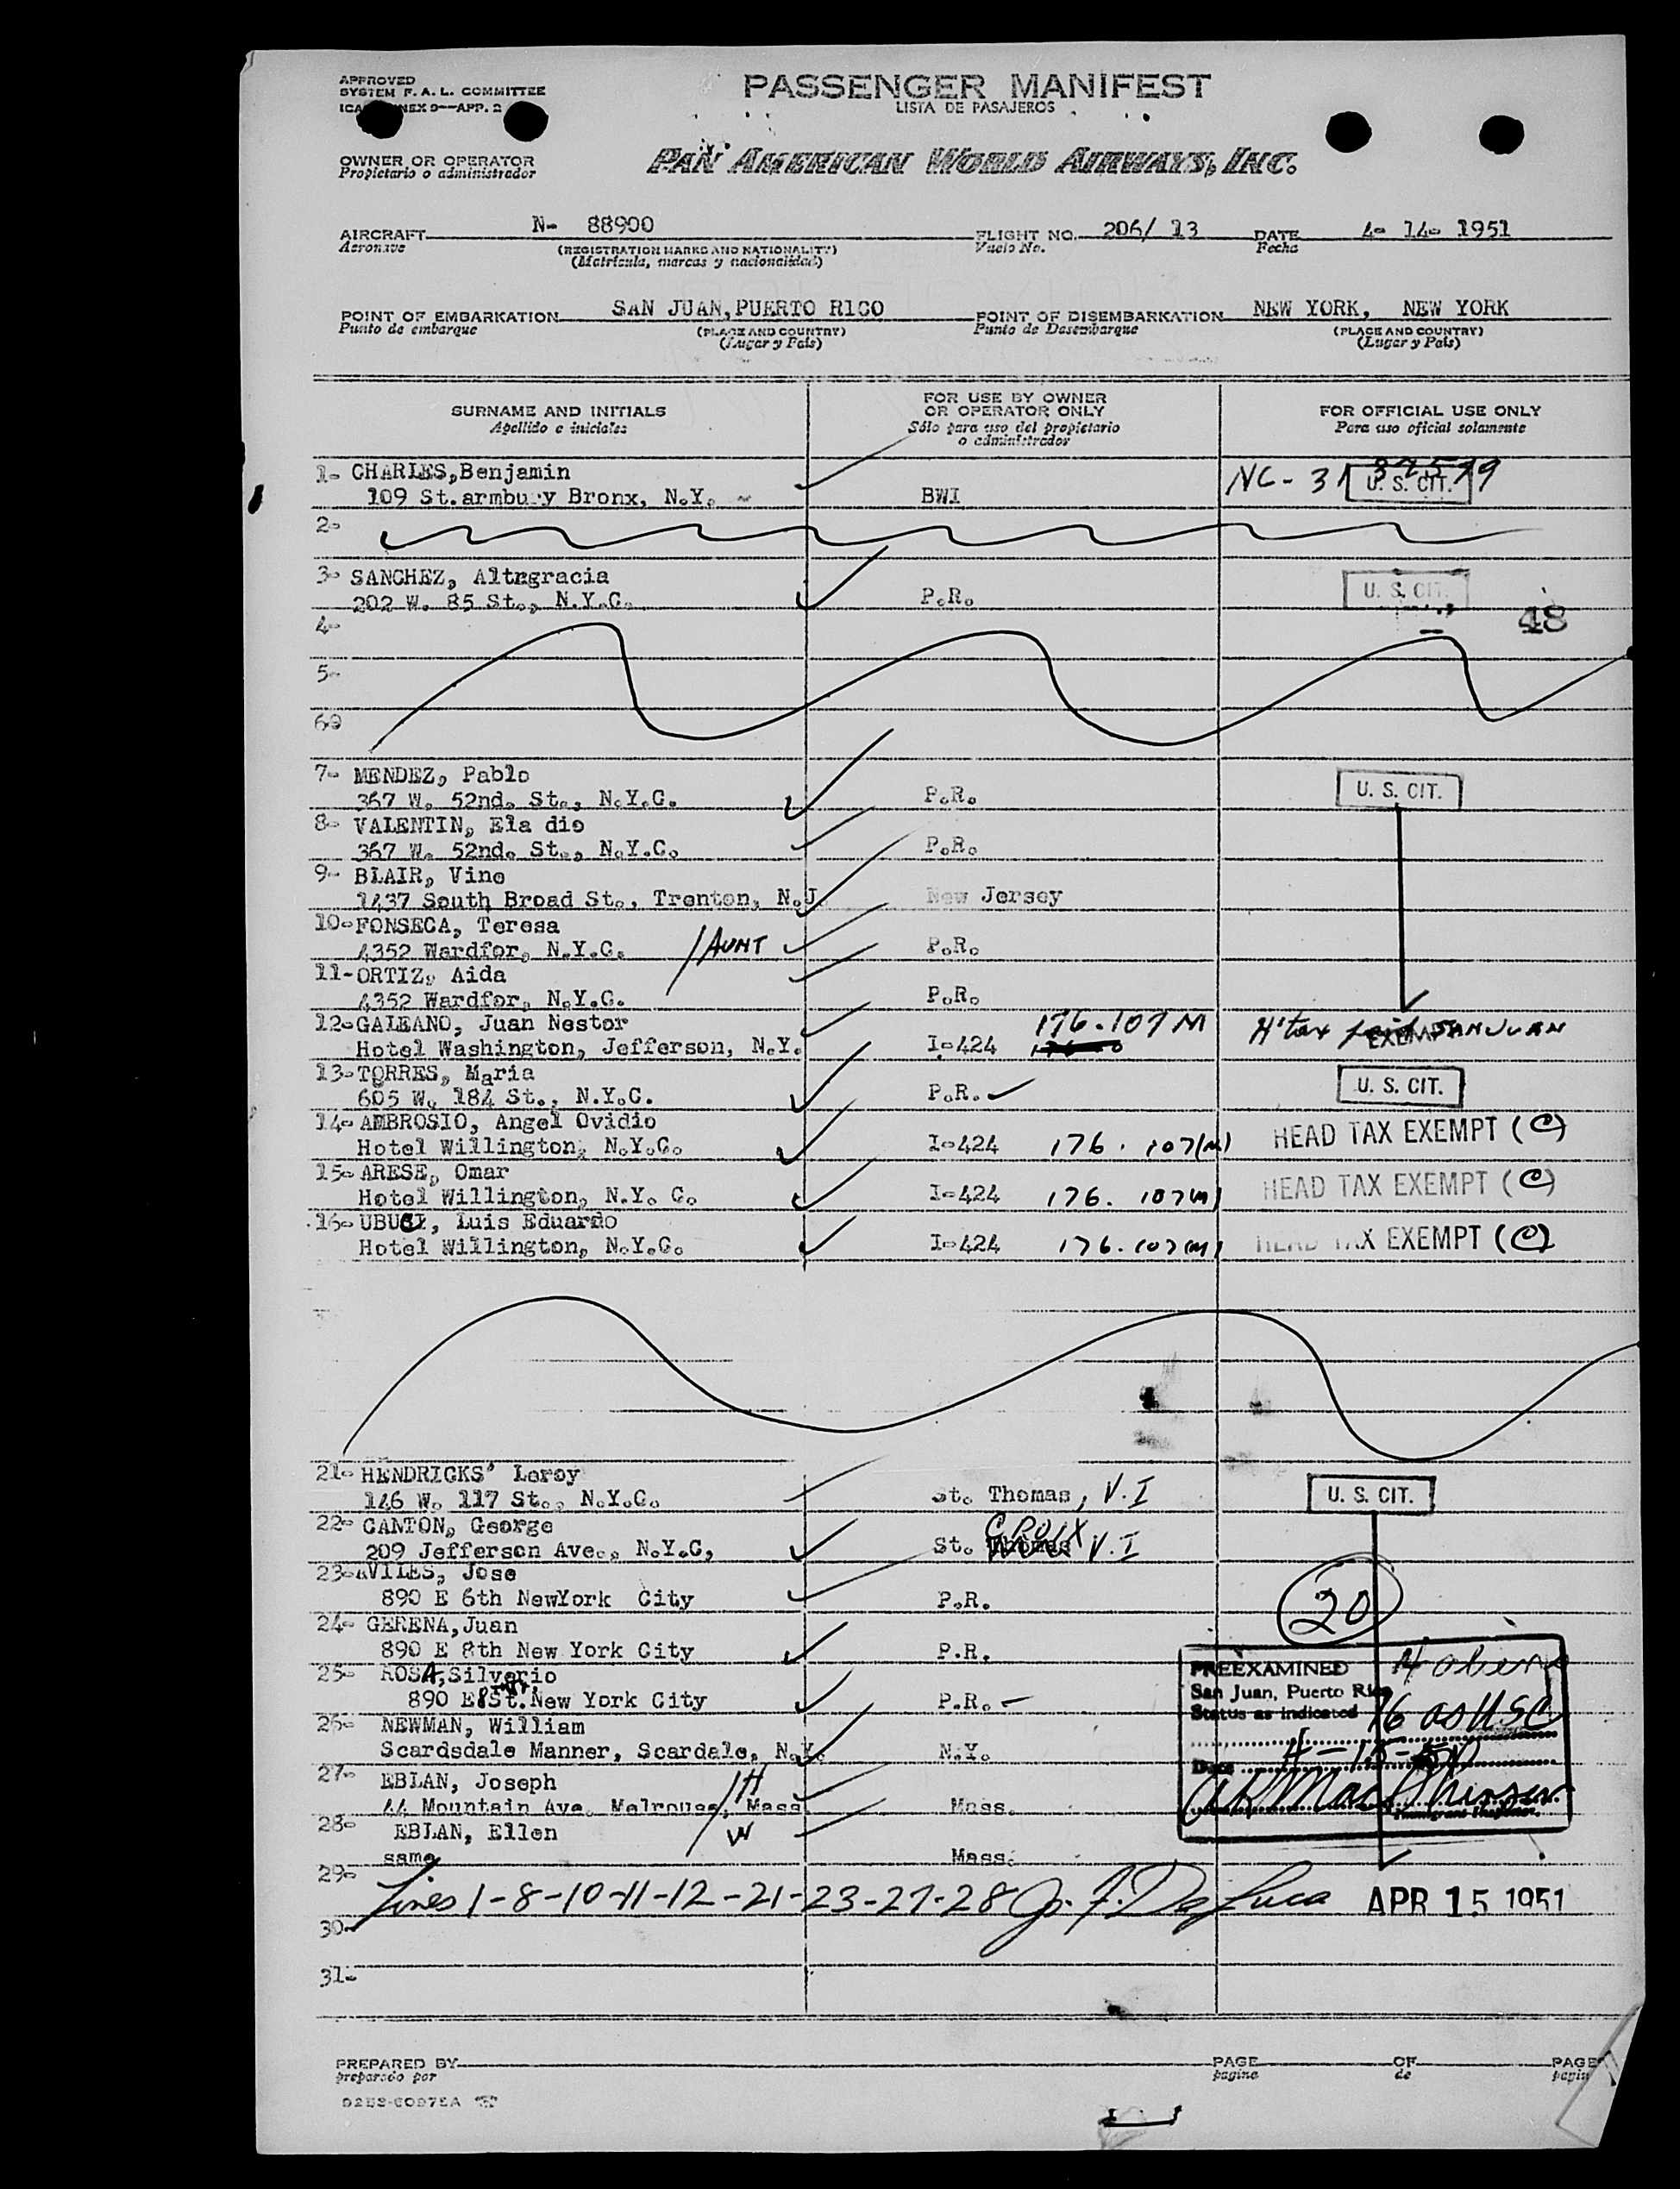 APPROVED
SYSTEM F. A. L. COMMITTEE
ICA NEX 9—APP. 2
PASSENGER MANIFEST
LISTA DE PASAJEROS
OWNER OR OPERATOR
Propietario o administrador
PAN AMERICAN WORLD AIRWAYS, INC.
AIRCRAFT N- 88900 FLIGHT NO. 206/ 13 DATE 4- 14- 1951
Aeronave (REGISTRATION MARKS AND NATIONALITY) Vuelo No. Fecha
(Matrícula, marcas y nacionalidad)
POINT OF EMBARKATION SAN JUAN, PUERTO RICO POINT OF DISEMBARKATION NEW YORK, NEW YORK
Punto de embarque (PLACE AND COUNTRY) Punto de Desembarque (PLACE AND COUNTRY)
(Lugar y País) (Lugar y País)
SURNAME AND INITIALS FOR USE BY OWNER OR OPERATOR ONLY FOR OFFICIAL USE ONLY
Apellido e iniciales Sólo para uso del propietario o administrador Para uso oficial solamente
1- CHARLES, Benjamin NC - 31
109 St.armbury Bronx, N.Y. BWI U. S. CIT.
2-
3- SANCHEZ, Altagracia U. S. CIT.
202 W. 85 St., N.Y.C. P.R.
48
4-
5-
6-
7- MENDEZ, Pablo U. S. CIT.
367 W. 52nd. St., N.Y.C. P.R.
8- VALENTIN, Ela dio
367 W. 52nd. St., N.Y.C. P.R.
9- BLAIR, Vine
1437 South Broad St., Trenton, N.J. New Jersey
10- FONSECA, Teresa
4352 Wardfor, N.Y.C. / AUNT P.R.
11- ORTIZ, Aida
4352 Wardfor, N.Y.C. P.R.
12- GALEANO, Juan Nestor 176.107 M H'tax paid SAN JUAN
Hotel Washington, Jefferson, N.Y. I-424 EXEMPT
13- TORRES, Maria U. S. CIT.
605 W. 184 St., N.Y.C. P.R.
14- AMBROSIO, Angel Ovidio HEAD TAX EXEMPT (C)
Hotel Willington, N.Y.C. I-424 176. 107(M)
15- ARESE, Omar HEAD TAX EXEMPT (C)
Hotel Willington, N.Y. C. I-424 176. 107(M)
16- Luis Eduardo HEAD TAX EXEMPT (C)
Hotel Willington, N.Y.C. I-424 176.107(M)
21- HENDRICKS' Leroy U. S. CIT.
146 W. 117 St., N.Y.C. St. Thomas, V.I
22- CANTON, George CROIX
209 Jefferson Ave., N.Y.C, St. Thomas V.I
23- AVILES, Jose
890 E 6th NewYork City P.R. 20
24- GERENA, Juan
890 E 8th New York City P.R.
25- ROSA, Silverio
890 E 8 St. New York City P.R.
26- NEWMAN, William
Scardsdale Manner, Scardale, N.Y. N.Y.
27- EBLAN, Joseph / H
44 Mountain Ave. Melrouse, Mass. Mass.
28- EBLAN, Ellen / W
same Mass.
PREEXAMINED 4 aliens
San Juan, Puerto Rico
Status as indicated 16 as USC
Date 4-15-51
Immigrant Inspector.
29- Lines 1-8-10-11-12-21-23-27-28 APR 15 1951
30-
31-
PREPARED BY PAGE OF PAGE
preparado por pagina de pagin